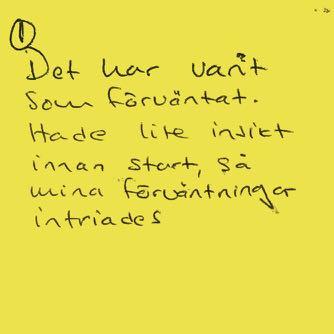 ①
Det har varit
som förväntat.
Hade lite insikt
innan start, så
mina förväntningar
intriades